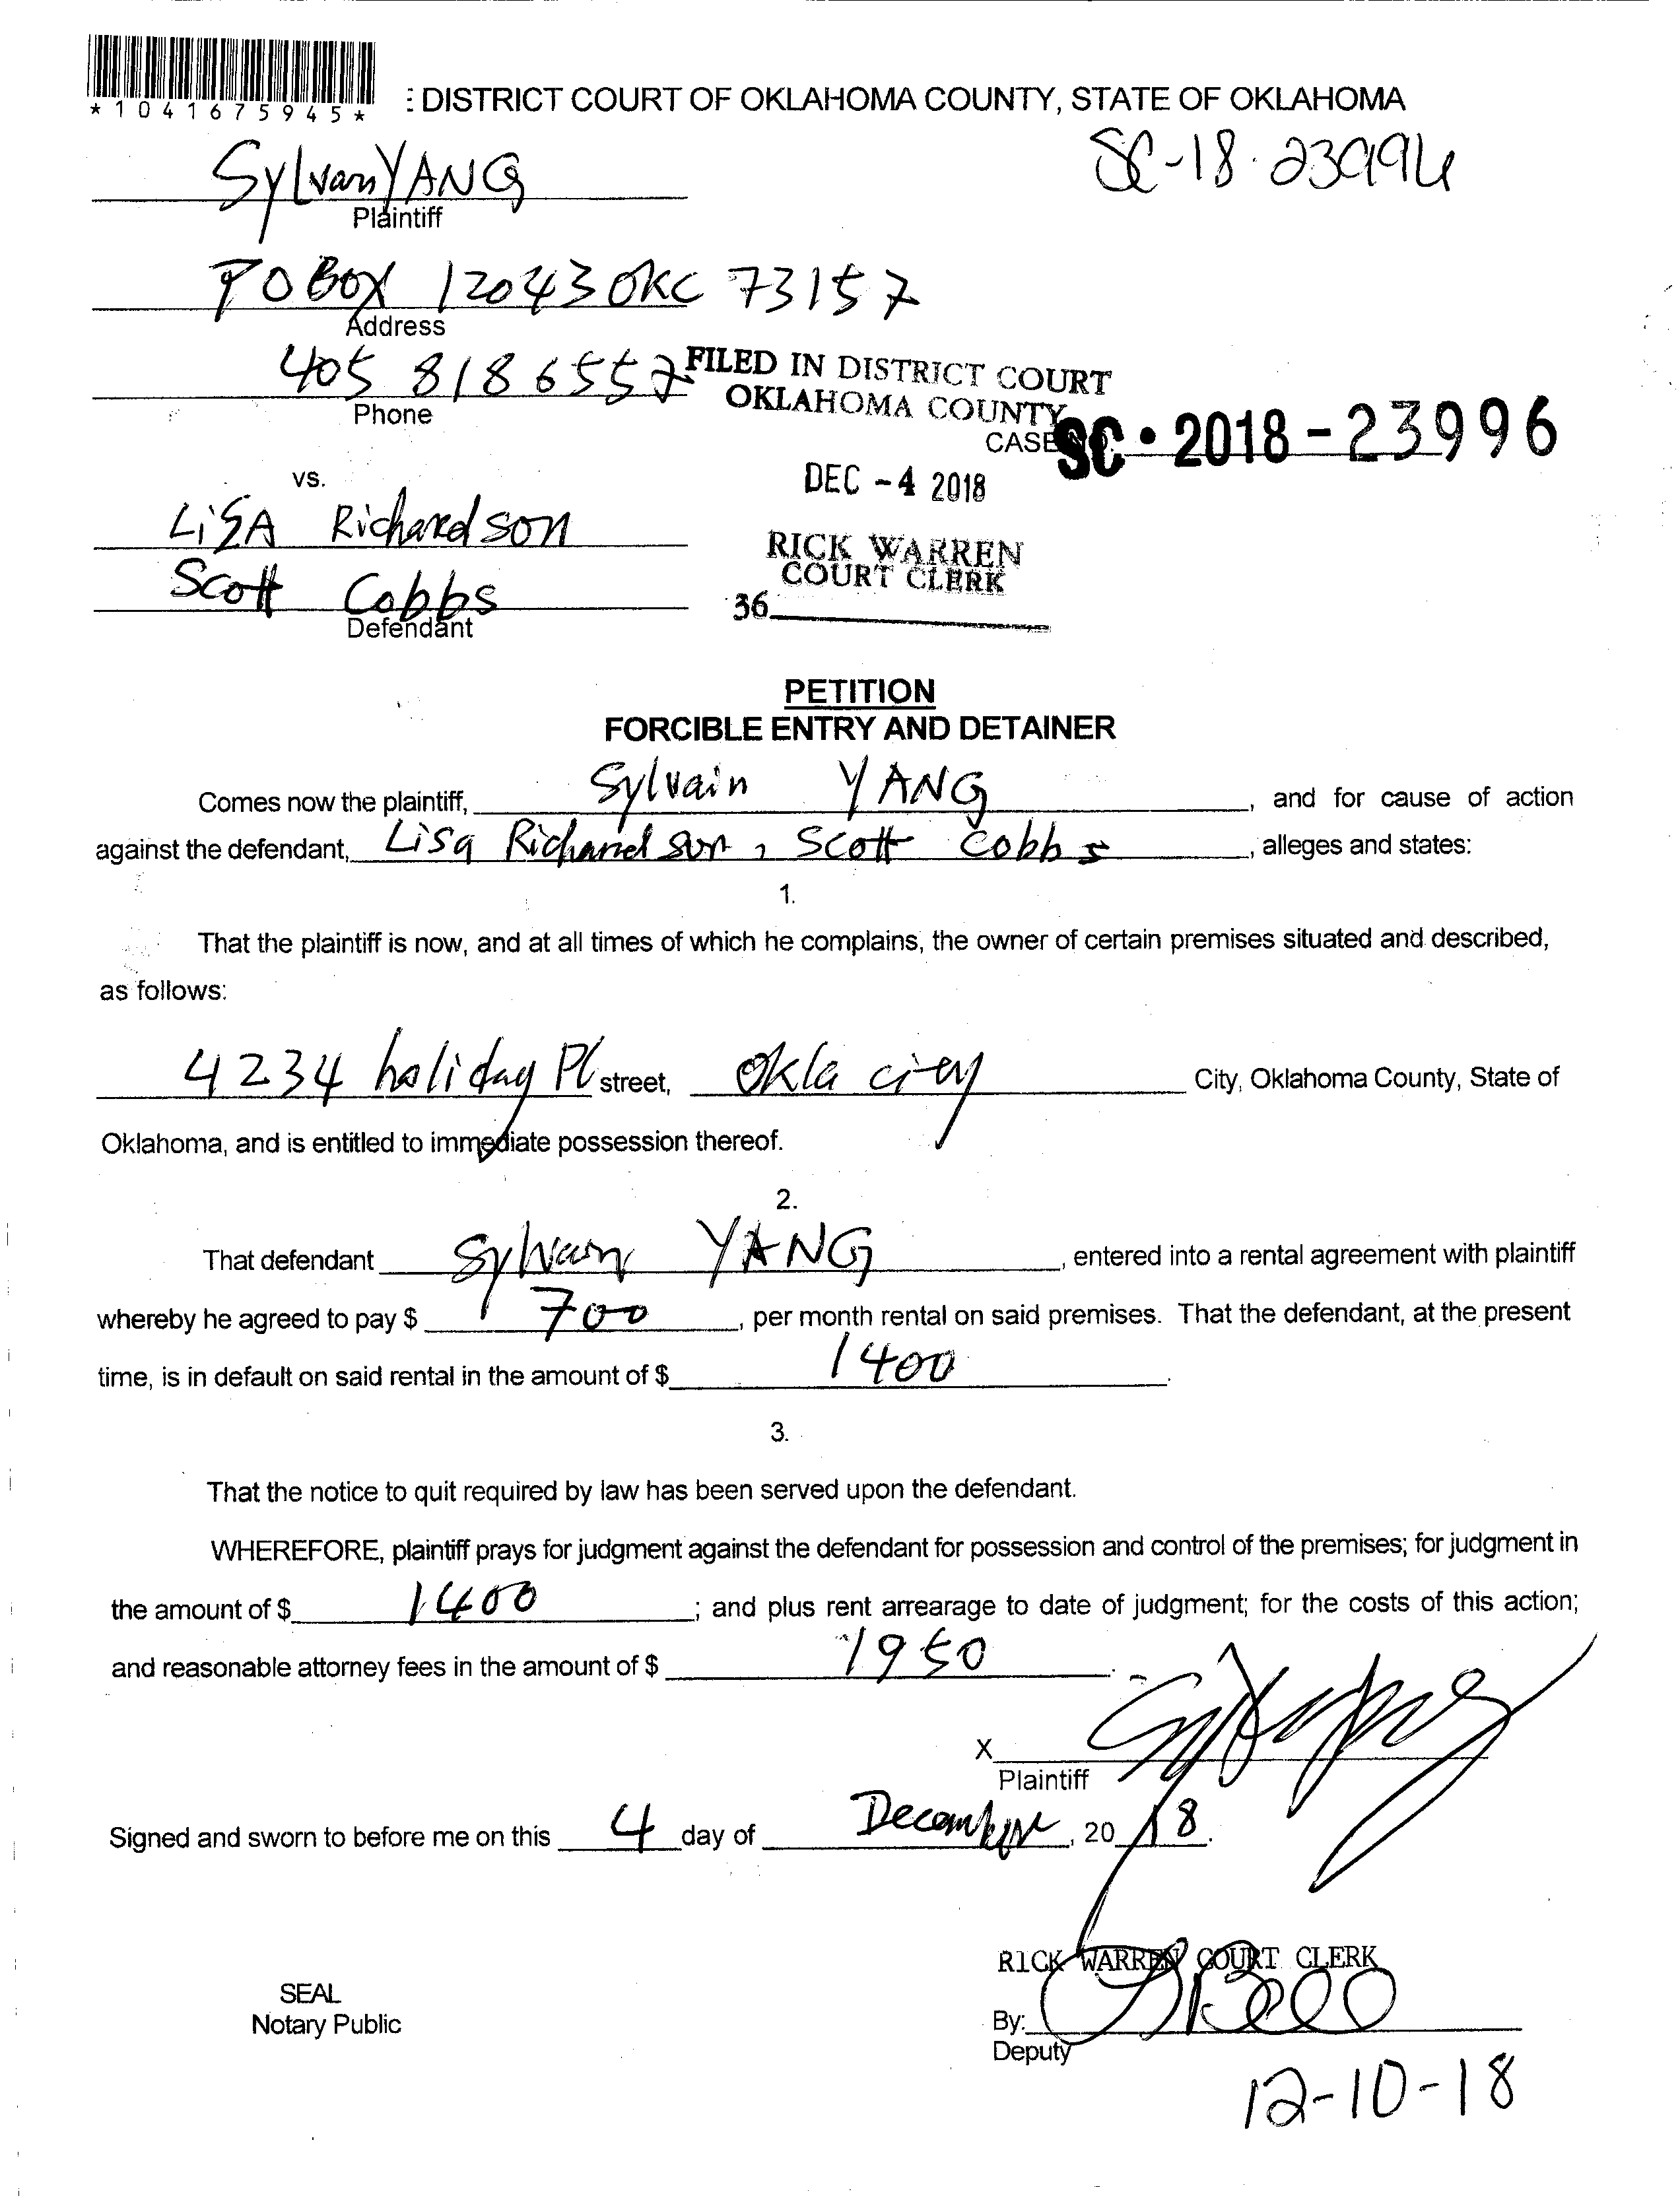 *1041675945*
: DISTRICT COURT OF OKLAHOMA COUNTY, STATE OF OKLAHOMA
SC-18-23996
Sylvain YANG
Plaintiff
PO BOX 12043 OKC 73157
Address
405 818 6557
Phone
FILED IN DISTRICT COURT
OKLAHOMA COUNTY
CASE SC • 2018 - 23996
DEC -4 2018
vs.
LiSA Richardson
RICK WARREN
COURT CLERK
Scott Cobbs
36
Defendant
PETITION
FORCIBLE ENTRY AND DETAINER
Comes now the plaintiff, Sylvain YANG, and for cause of action
against the defendant, Lisa Richardson, Scott Cobbs, alleges and states:
1.
That the plaintiff is now, and at all times of which he complains, the owner of certain premises situated and described,
as follows:
4234 holiday Pl street, Okla city City, Oklahoma County, State of
Oklahoma, and is entitled to immediate possession thereof.
2.
That defendant Sylvain YANG, entered into a rental agreement with plaintiff
whereby he agreed to pay $ 700, per month rental on said premises. That the defendant, at the present
time, is in default on said rental in the amount of $ 1400.
3.
That the notice to quit required by law has been served upon the defendant.
WHEREFORE, plaintiff prays for judgment against the defendant for possession and control of the premises; for judgment in
the amount of $ 1400; and plus rent arrearage to date of judgment; for the costs of this action;
and reasonable attorney fees in the amount of $ 1950.
X
Plaintiff
Signed and sworn to before me on this 4 day of December, 20 18.
RICK WARREN COURT CLERK
SEAL
Notary Public
By:
Deputy
12-10-18